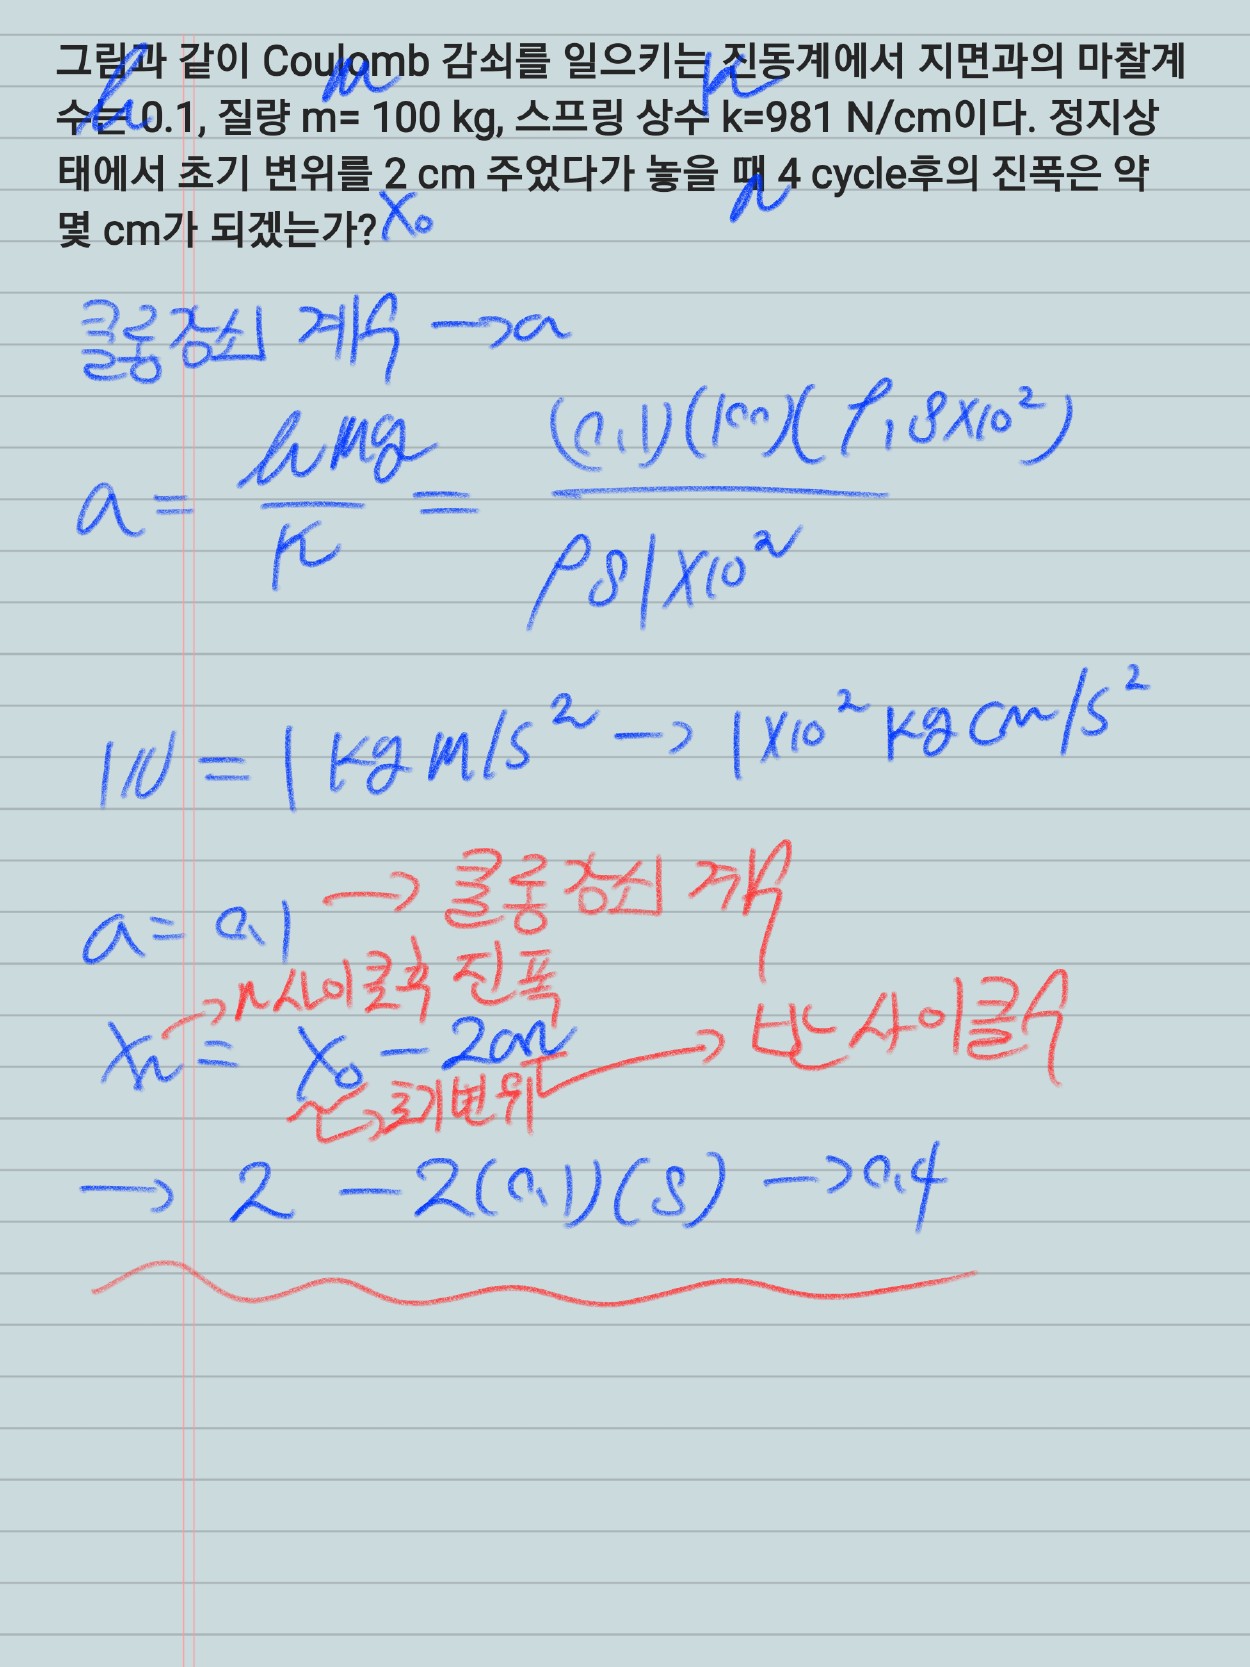 그림과 같이 Coulomb 감쇠를 일으키는 진동계에서 지면과의 마찰계
수는 0.1, 질량 m= 100 kg, 스프링 상수 k=981 N/cm이다. 정지상
태에서 초기 변위를 2 cm 주었다가 놓을 때 4 cycle후의 진폭은 약
몇 cm가 되겠는가?
μ m k
x₀ n
쿨롱감쇠 계수 → a
a = μmg/k = (0.1)(100)(9.8×10²)/981×10²
1N = 1 kg m/s² → 1×10² kg cm/s²
a = 0.1 → 쿨롱감쇠 계수
→ n사이클후 진폭
xₙ = x₀ - 2an → 반 사이클수
→ 초기변위
→ 2 - 2(0.1)(8) → 0.4